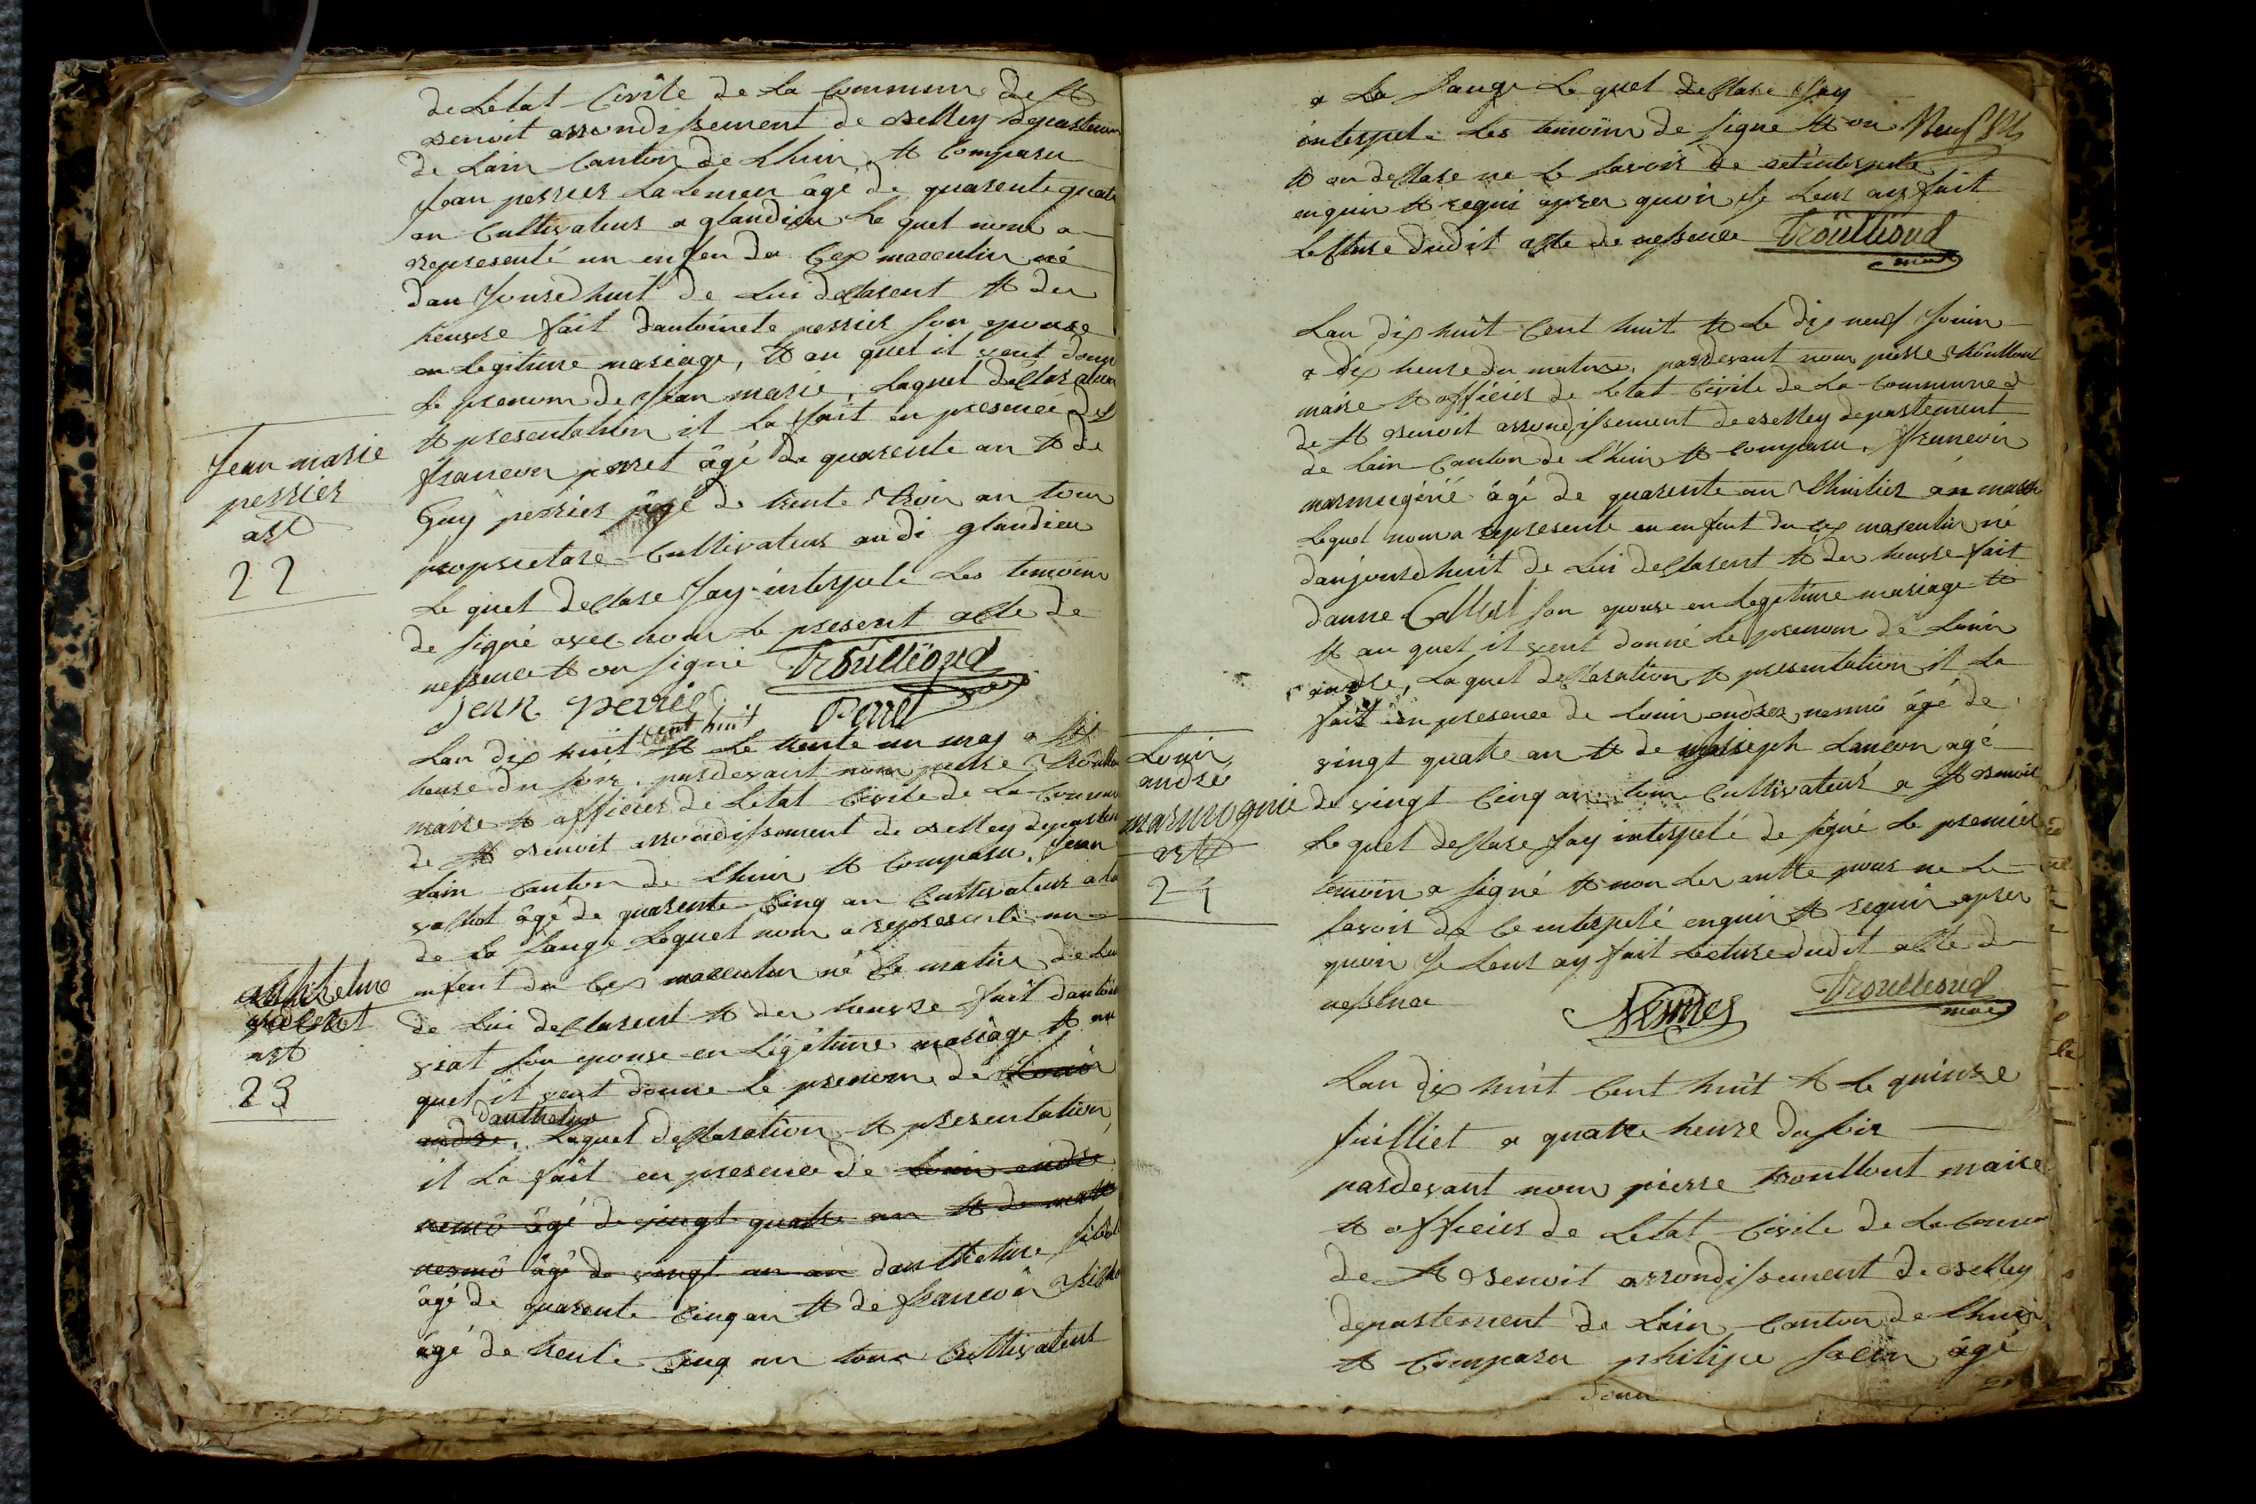 de Letat Civile de la Commune de St
Benoit arrondissement de Belley departemen
de Lain Canton de Lhuis et Comparu
Jean perrier Lalement âgé de quarente quatre
an Cultivateur a glandieu Le quel nous a
representé un enfen du Cex masculin né
dau Jourdhuit de Lui declarent et der
heusre fait dantoinete perrier son epouse
en Legitime mariage, et au quel il veut donné
Le prenom de Jean marie, Laquel declaration
et presentation il La fait en presence de
francon perret âgé de quarente an et de
Guy perrier âgé de trente trois an tous
proprietare Cultivateur audi glandieu
Le quel declare Jay interpelé Les temoin
de signé avec nous Le present acte de
nessence et on signé Troulliond
maire
Jean perrier Peret
Jean marie
perrier
ast
22
Lan dix huit cent huit et Le trente un may a
heure du soir, pardevant nous pierre Troullon
maire et officier de Letat Civile de La Commune
de St Benoit arrondissement de Belley departem
Lain Canton de Lhuis et Comparu, Jean
vallot âgé de quarente Cinq an Cultivateur a la
de La Sauge Lequel nous a representé un
enfent du Cex masculin né Ce matin de Lui
de Lui declarent et der heusre fait dantoi
viat son epouse en Légitime mariâge et au
quel il veut donne Le prenom de Louis
andre danthelme, Laquel declaration et presentation,
il La fait en presence de Louis andre
nermo âgé de vingt quatre an et de
nermo âgé de vingt un an danthelme
âgé de quarente Cinq an et de francoin
âgé de trente Cinq an tous Cultivateur
anthelme
vallot
ast
23
a La Sauge Le quel declare Jay
interpelé Les temoins de signe et on
et an declare ne Le savoir de ce interpelé
enquis et requis apres quoin Je Leur ay fait
Lecture dudit acte de nessence Troulliond
maire
Lan dix huit Cent huit et Le dix neuf Jouin
a dix heure du matine, pardevant nous pierre Troulliont
maire et officier de Letat Civile de La Commune d
de St Benoit arrondissement de Belley departement
de Lain Canton de Lhuis et comparu, francoin
marmogénié âgé de quarente an
Lequel nous a represente un enfent du cex masculin né
danjourdhuit de Lui declarent et der heusre fait
danne Callet son epouse en Legetime mariage et
et au quel il veut donné Le prenom de Louis
andre, Laquel declaration et presentation il La
fait en presence de Louis andrez nermo âgé de
vingt quatre an et de Joseph Lancon agé
de vingt Cinq an tous Cultivateur a St Benoit
Le quel declare Jay interpelé de signé Le premier
temoin a signé et non Les autte pour ne Le
savoir de Ce interpelé enquis et requis apres
quoin Je Leur ay fait Lecture dudit acte de
nessence Nermoz Troulliond
maire
Louis
andre
marmognié
ast
24
Lan dix huit Cent huit et Le quinze
Juilliet a quatre heure du soir
pardevant nous pierre troulliont maire
et officier de Letat Civile de La Commun
de St Benoit arrondissement de Belley
departement de Lain Canton de Lhuis
et Comparu philipe Socin âgé